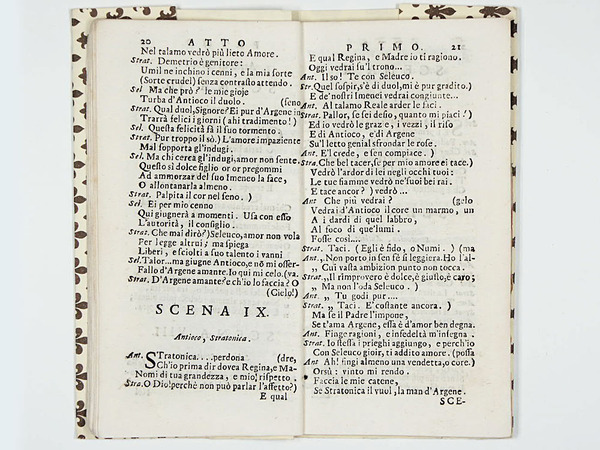 20 ATTO
Nel talamo vedrò più lieto Amore.
Strat. Demetrio è genitore:
Umil ne inchino i cenni, e la mia sorte
(Sorte crudel) senza contrasto attendo.
Sel Ma che prò? le mie gioje
Turba d'Antioco il duolo. (seno
Strat. Qual duol, Signore? Ei pur d'Argene in
Trarrà felici i giorni (ahi tradimento!)
Sel. Questa felicità fà il suo tormento.
Strat. Pur troppo il sò.) L'amore impaziente
Mal sopporta gl'indugi.
Sel. Ma chi cerca gl'indugi, amor non sente.
Questo sì dolce figlio or or pregommi
Ad ammorzar del suo Imeneo la face,
O allontanarla almeno.
Strat. Palpita il cor nel seno. )
Sel. Ei per mio cenno
Quì giugnerà a momenti. Usa con esso
L'autorità, il consiglio.
Strat. Che mai dirò?) Seleuco, amor non vola
Per legge altrui; ma spiega
Liberi, e sciolti a suo talento i vanni
Sel. Talor... ma giugne Antioco, e nō mi osser-
Fallo d'Argene amante. Io quì mi celo. (va.
Strat. D'Argene amante? e ch'io lo faccia? O
(Cielo!)
SCENA IX.
Antioco, Stratonica.
Ant. STratonica.... perdona (dre,
Ch'io prima dir dovea Regina, e Ma-
Nomi di tua grandezza, e mio rispetto.
Stra. O Dio! perchè non può parlar l'affetto?)
E qual
PRIMO. 21
E qual Regina, e Madre io ti ragiono.
Oggi vedrai su'l trono...
Ant. Il so! Te con Seleuco.
Str. Quel sospir, s'è di duol, mi è pur gradito.)
E de' nostri Imenei vedrai congiunte...
Ant. Al talamo Reale arder le faci.
Strat. Pallor, se sei desio, quanto mi piaci!)
Ed io vedrò le grazie, i vezzi, il riso
E di Antioco, e di Argene
Su'l letto genial sfrondar le rose.
Ant. E'l crede, e sen compiace. )
Stra. Che bel tacer, se per mio amore ei tace.)
Vedrò l'ardor di lei negli occhi tuoi:
Le tue fiamme vedrò ne' suoi bei rai.
E tace ancor? ) vedrò...
Ant Che più vedrai? (gelo
Vedrai d'Antioco il core un marmo, un
A i dardi di quel labbro,
Al foco di que' lumi.
Fosse così....
Strat. Taci. (Egli è fido, o Numi. ) (ma
Ant. „Non porto in sen fè sì leggiera. Ho l'al-
„ Cui vasta ambizion punto non tocca.
Strat. „Il rimprovero è dolce, è giusto, è caro;
„ Ma non l'oda Seleuco. )
Ant. „ Tu godi pur....
Strat. „ Taci. E' costante ancora. )
Ma se il Padre l'impone,
Se t'ama Argene, essa è d'amor ben degna.
Ant. Finge ragioni, e infedeltà m'insegna.
Strat. Io stessa i prieghi aggiungo, e perch'io
Con Seleuco gioir, ti addito amore. (possa
Ant Ah! fingi almeno una vendetta, o core.)
Orsù: vinto mi rendo.
Faccia le mie catene,
Se Stratonica il vuol, la man d'Argene.
SCE-